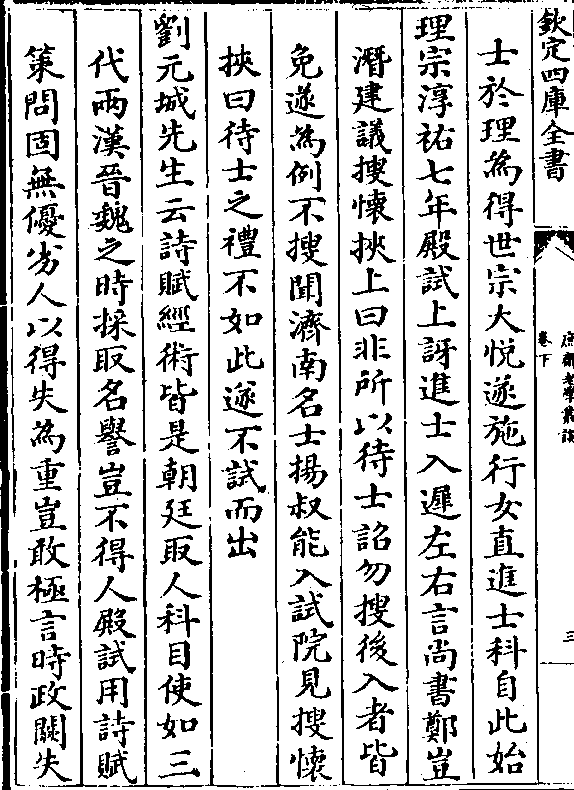 欽定四庫全書
卷下
庶齋老學叢談
三
士於理為得世宗大悅遂施行女直進士科自此始
理宗淳祐七年殿試上訝進士入遲左右言尚書鄭豈
潛建議搜懷挾上曰非所以待士詔勿搜後入者皆
免遂為例不搜聞濟南名士揚叔能入試院見搜懷
挾曰待士之禮不如此遂不試而出
劉元城先生云詩賦經術皆是朝廷取人科目使如三
代兩漢晉魏之時採取名譽豈不得人殿試用詩賦
策問固無優劣人以得失為重豈敢極言時政闕失